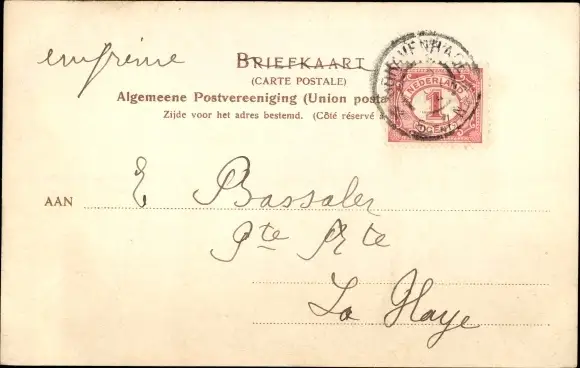 emprime
BRIEFKAART
(CARTE POSTALE)
Algemeene Postvereeniging (Union posta
Zijde voor het adres bestemd. (Côté réservé
NEDERLAND
1
CENT
AAN E Bassaler
Pte Rte
La Haye